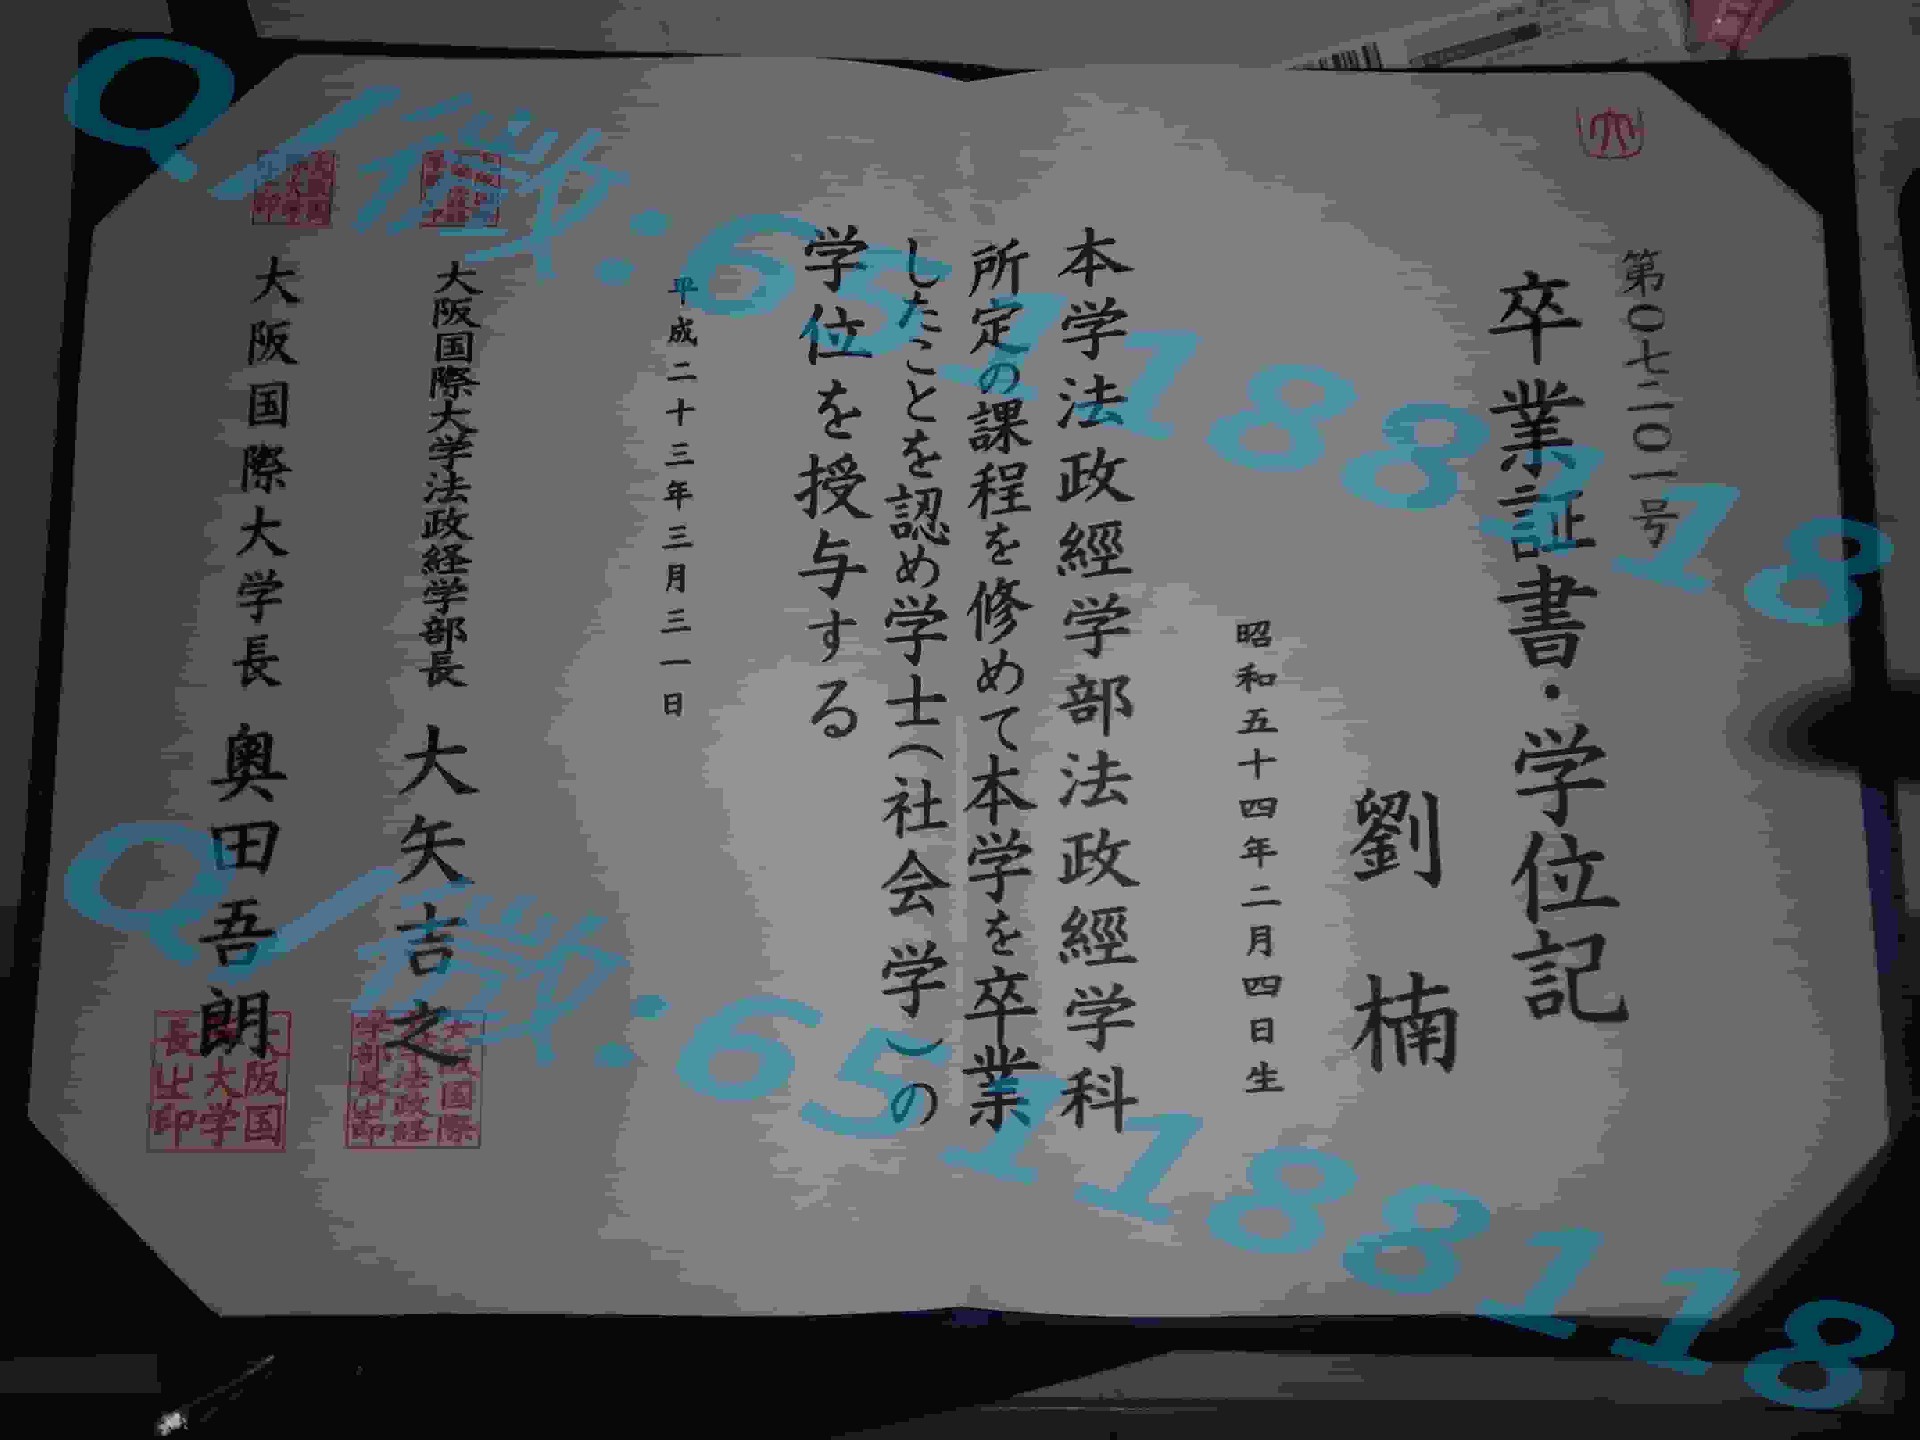 第〇七二〇一号
卒業証書・学位記
劉楠
昭和五十四年二月四日生
本学法政經学部法政經学科
所定の課程を修めて本学を卒業
したことを認め学士(社会学)の
学位を授与する
平成二十三年三月三一日
大阪国際大学法政経学部長 大矢吉之
大阪国際大学長 奥田吾朗
Q/微:6511881118
Q/微:6511881118